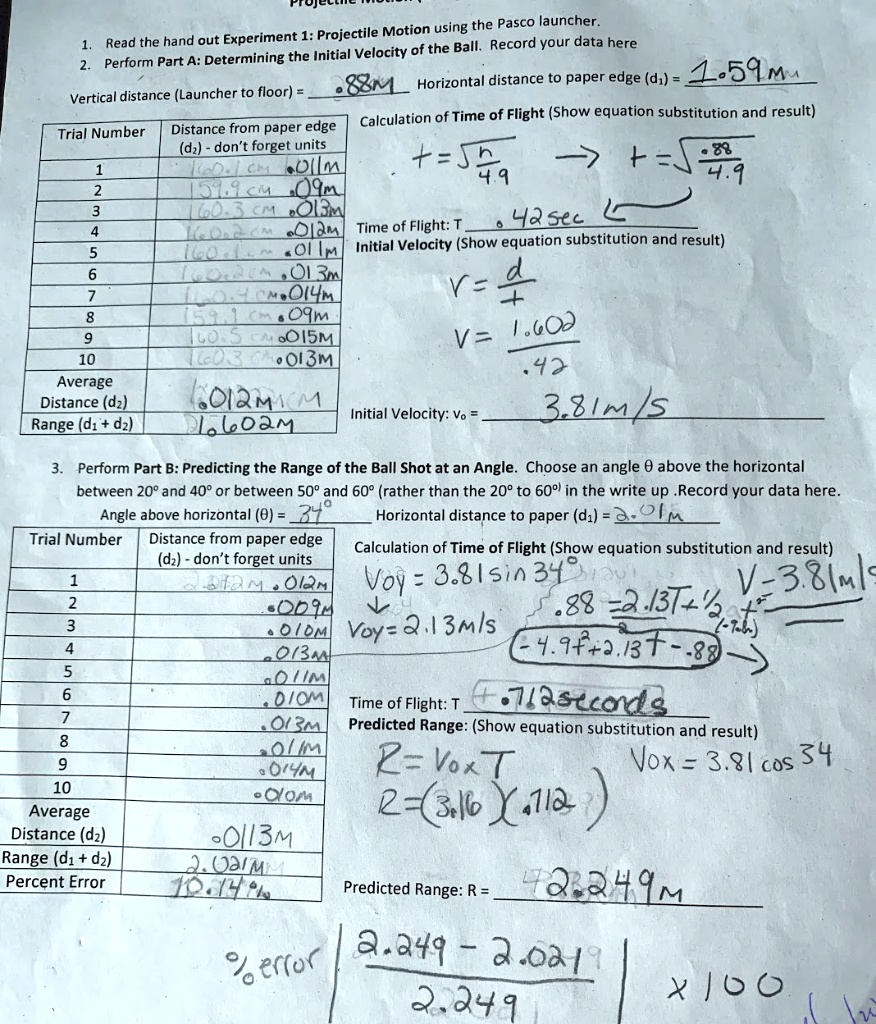 1. Read the hand out Experiment 1: Projectile Motion using the Pasco launcher.
2. Perform Part A: Determining the Initial Velocity of the Ball. Record your data here
Vertical distance (Launcher to floor) = .88M Horizontal distance to paper edge (d₁) = 1.59m
Trial Number Distance from paper edge (d₂) - don't forget units
1 160.1 cm .011m
2 159.9 cm .09m
3 160.3 cm .013m
4 .012m
5 .011m
6 .013m
7 .014m
8 159.1 cm .09m
9 160.5 .015m
10 160.3 .013m
Average Distance (d₂) .012m
Range (d₁ + d₂) 1.602m
Calculation of Time of Flight (Show equation substitution and result)
t = √h/4.9 → t = √.88/4.9
Time of Flight: T .42 sec
Initial Velocity (Show equation substitution and result)
V = d/t
V = 1.602/.42
Initial Velocity: v₀ = 3.81m/s
3. Perform Part B: Predicting the Range of the Ball Shot at an Angle. Choose an angle θ above the horizontal
between 20º and 40º or between 50º and 60º (rather than the 20º to 60º) in the write up .Record your data here.
Angle above horizontal (θ) = 34° Horizontal distance to paper (d₁) = 2.01m
Trial Number Distance from paper edge (d₂) - don't forget units
1 .012m
2 .009m
3 .010m
4 .013m
5 .011m
6 .010m
7 .013m
8 .011m
9 .014m
10 .010m
Average Distance (d₂) .0113m
Range (d₁ + d₂) 2.021m
Percent Error 10.14%
Calculation of Time of Flight (Show equation substitution and result)
Voy = 3.81 sin 34° V=3.81m/s
↓ .88 = 2.13T + ½ t²
Voy = 2.13m/s (-9.8)
-4.9t²+2.13t - .88 →
Time of Flight: T .712seconds
Predicted Range: (Show equation substitution and result)
R = Vox T Vox = 3.81 cos 34
R = (3.16)(.712)
Predicted Range: R = 2.249m
% error | 2.249 - 2.021 / 2.249 | x 100